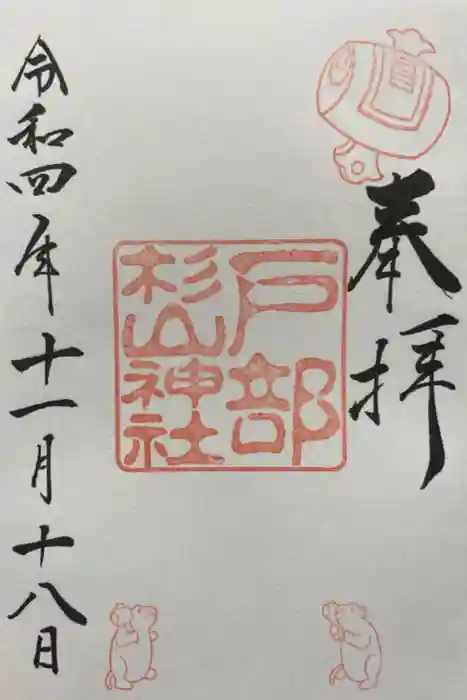 奉拝
戸部
杉山神社
令和四年十一月十八日